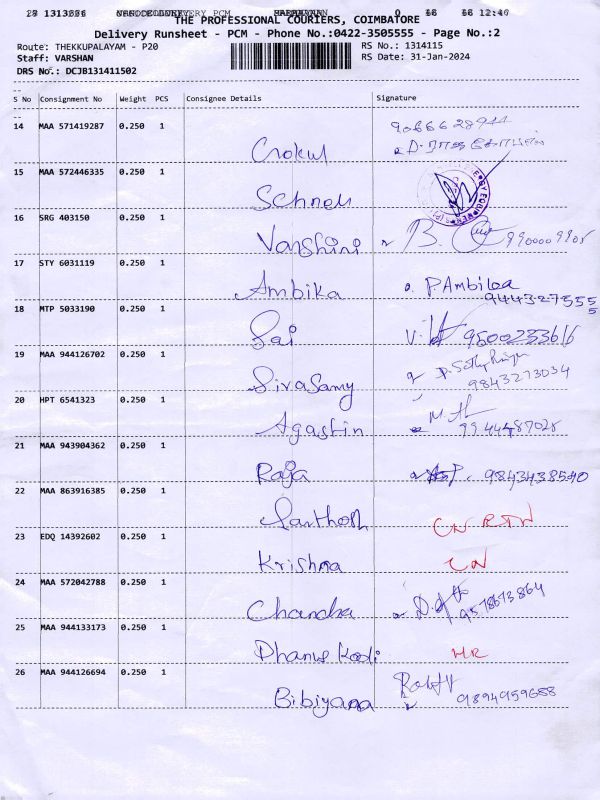 THE PROFESSIONAL COURIERS, COIMBATORE
Delivery Runsheet - PCM - Phone No.:0422-3505555 - Page No.:2
Route: THEKKUPALAYAM - P20 RS No.: 1314115
Staff: VARSHAN RS Date: 31-Jan-2024
DRS No.: DCJB131411502
S No Consignment No Weight PCS Consignee Details Signature
14 MAA 571419287 0.250 1
Gokul
15 MAA 572446335 0.250 1
16 SRG 403150 0.250 1
Varshini B.
17 STY 6031119 0.250 1
Ambika P.Ambika
9443275555
18 MTP 5033190 0.250 1
Sai 9500233616
19 MAA 944126702 0.250 1
Sivasamy 9843273034
20 HPT 6541323 0.250 1
Agastin 9944489028
21 MAA 943904362 0.250 1
Raja 9843438540
22 MAA 863916385 0.250 1
Santhosh CN RTN
23 EDQ 14392602 0.250 1
Krishna CN
24 MAA 572042788 0.250 1
Chandra 9578673864
25 MAA 944133173 0.250 1
Dhanus Kodi HR
26 MAA 944126694 0.250 1
Bibiyana 9894959688